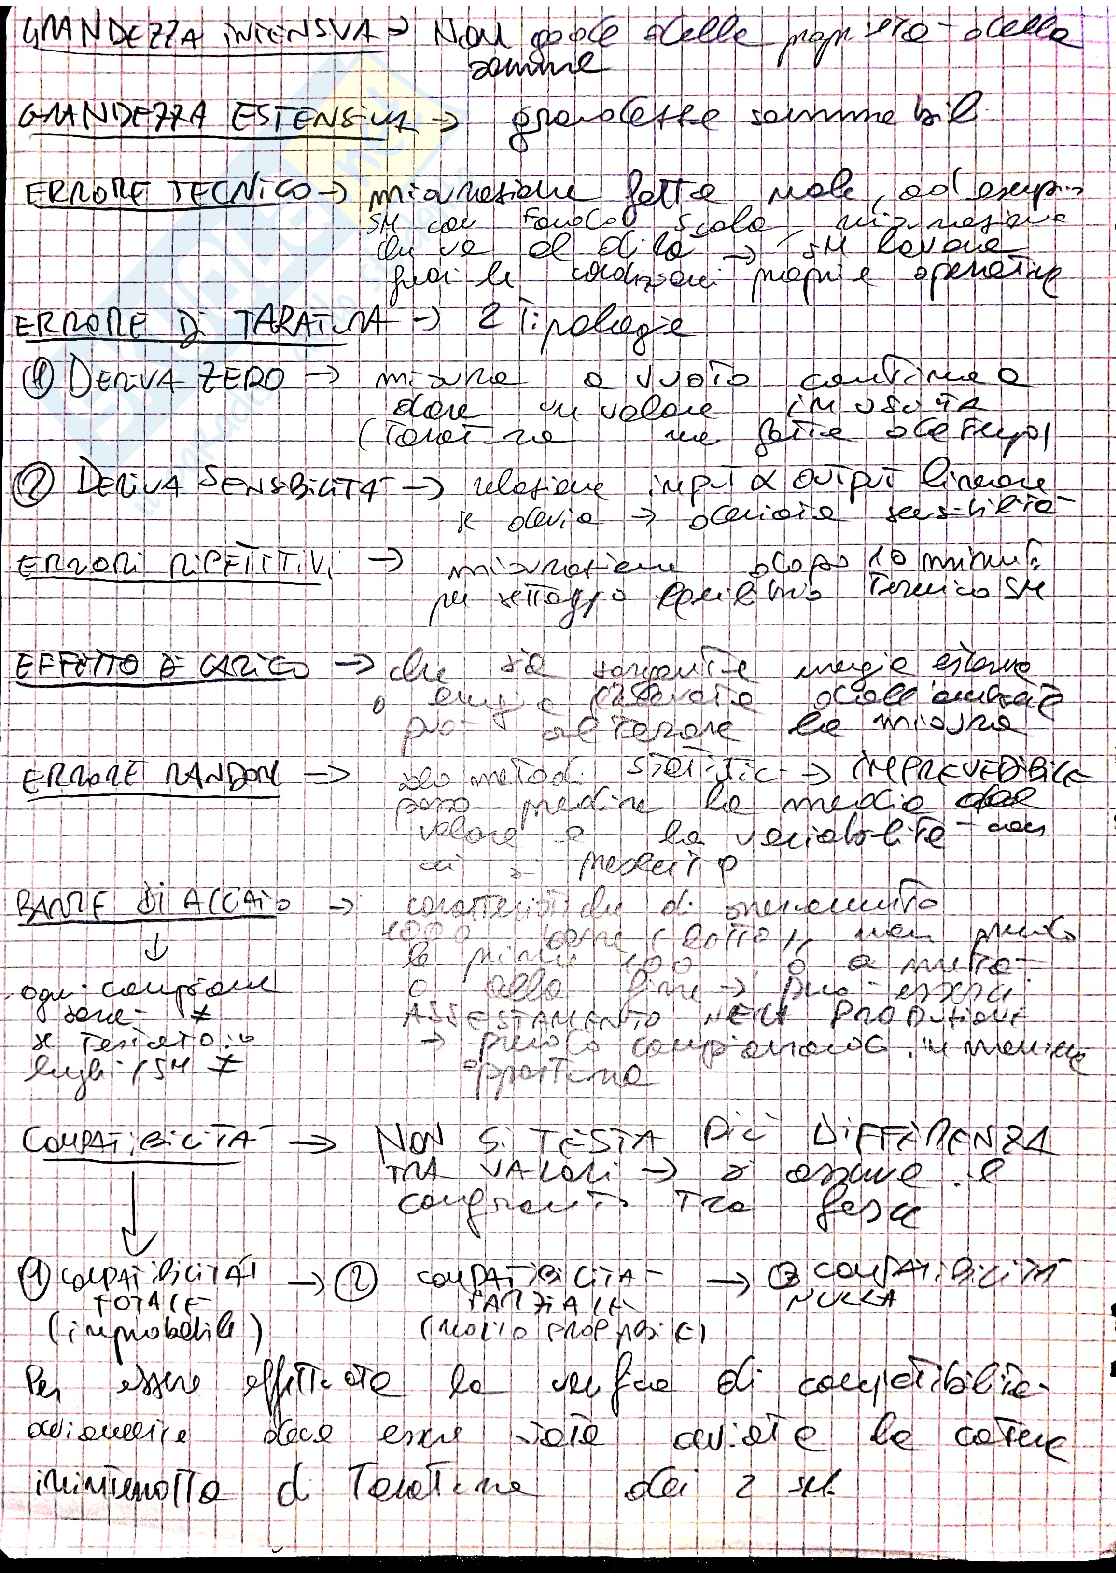 GRANDEZZA INTENSIVA → Non gode della proprietà della
somma
GRANDEZZA ESTENSIVA → grandezze sommabili
ERRORE TECNICO → misurazione fatta male, ad esempio
SM con Fondo Scala, misurazione
che va al di là → SM lavora
fuori le condizioni proprie operative
ERRORE Di TARATURA → 2 Tipologie
① DERIVA ZERO → misura a vuoto continua a
dare un valore in USCITA
(Taratura ma fatta del tempo)
② DERIVA SENSIBILITÀ → relazione input α output lineare
se devia → deviata sensibilità
ERRORI RIPETITIVI → misurazione dopo 10 minuti
per settaggio Equilibrio Termico SM
EFFETTO DI CARICO → che sia sorgente energia esterna
o energia prelevata dall'ambiente
può alterare la misura
ERRORE RANDOM → solo metodi statistici → IMPREVEDIBILE
posso predire la media del
valore e la variabilità con
cui si presenta
BANDE Di ACCAIO → caratteristiche di
1000 barre (lotto), non prendo
le prime 100, o a metà
o alla fine → può esserci
ASSESTAMENTO NELLA PRODUZIONE
→ prendo campionando in maniera
opportuna
↓
ogni campione
sarà ≠
se testato in
luoghi / SM ≠
COMPATIBILITÀ → NON Si TESTA PIÙ DIFFERENZA
TRA VALORI → si assume il
confronto Tra fasce
↓
① COMPATIBILITÀ → ② COMPATIBILITÀ → ③ COMPATIBILITÀ
TOTALE PARZIALE NULLA
(improbabile) (MOLTO PROBABILE)
Per essere effettuata la verifica di compatibilità
ovviamente deve essere stata avviata la catena
ininterrotta di Taratura dei 2 SM.